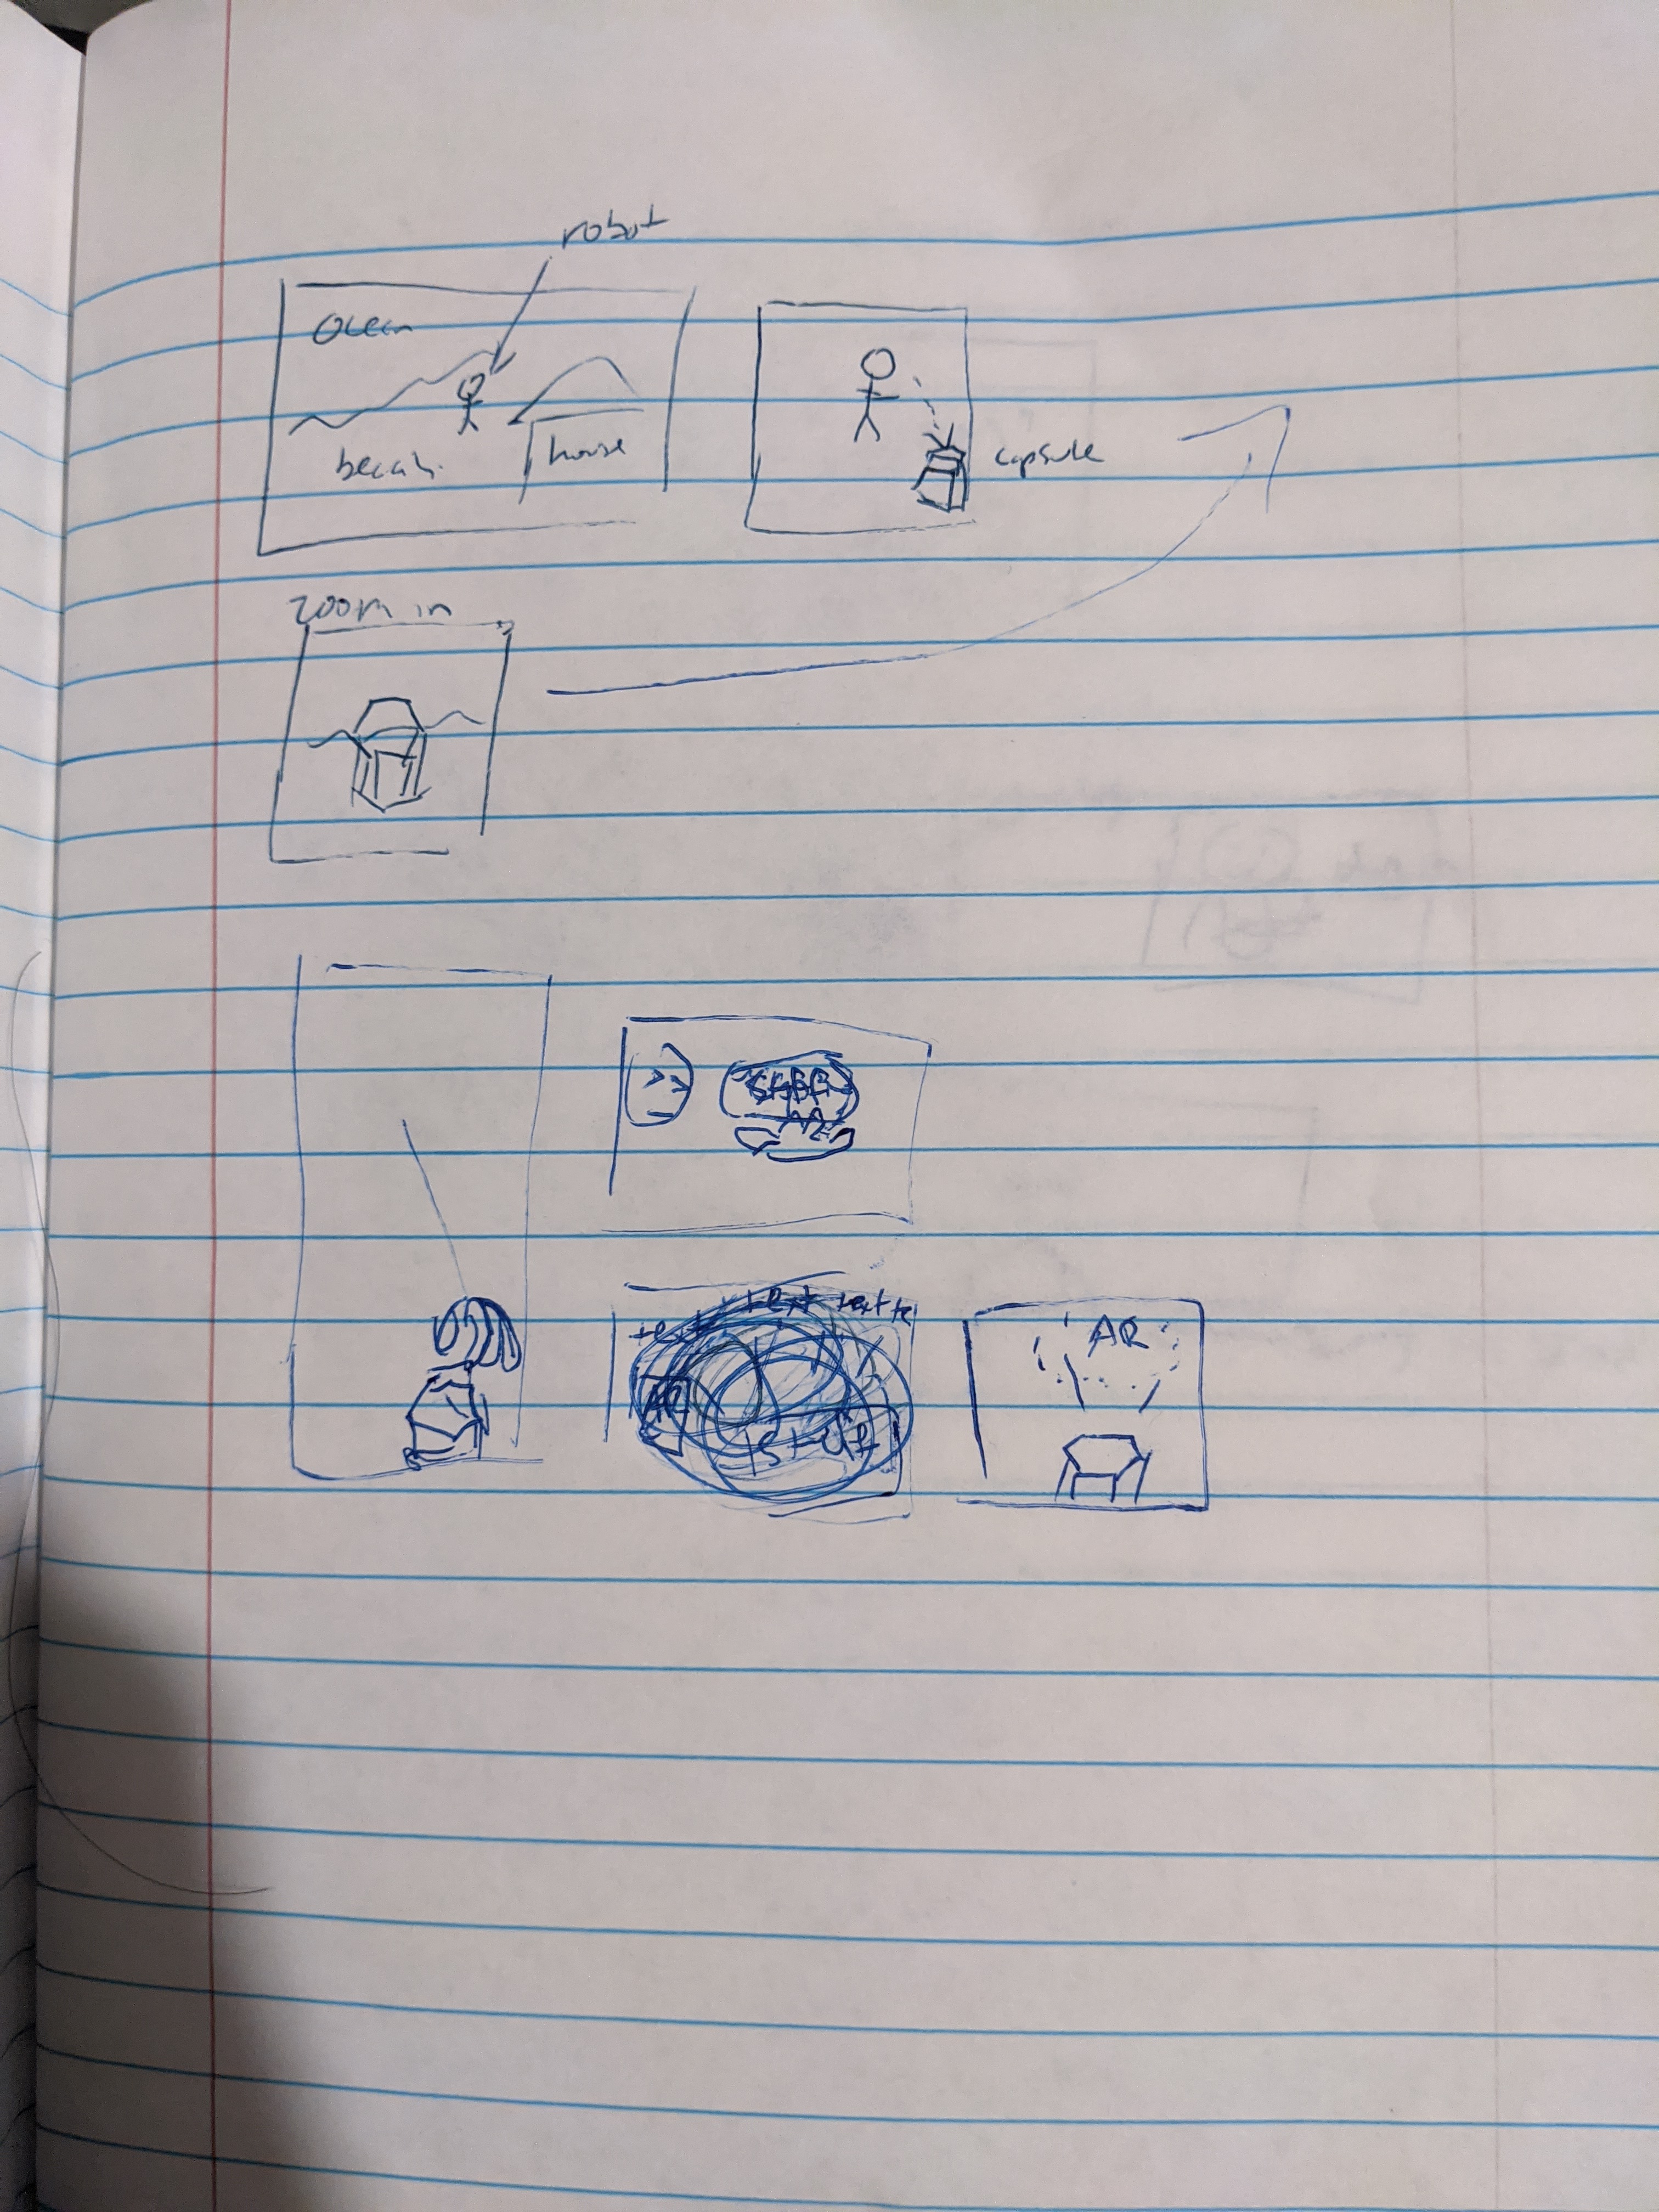 robot
Ocean
beach
house
capsule
zoom in
text text te
text
AR